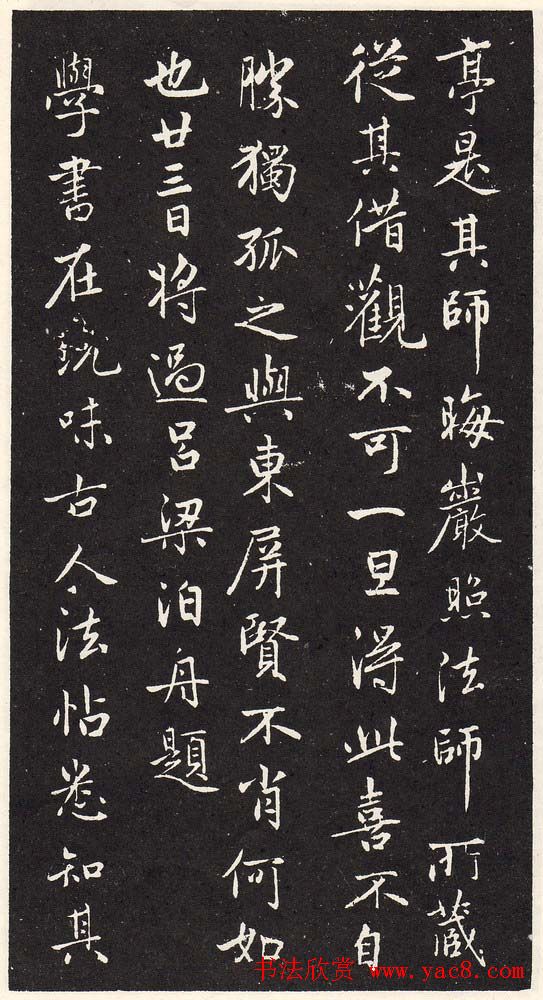 亭是其師晦巖照法師所藏
從其借觀不可一旦得此喜不自
勝獨孤之與東屏賢不肖何如
也廿三日將過呂梁泊舟題
學書在玩味古人法帖悉知其
书法欣赏 www.yac8.com